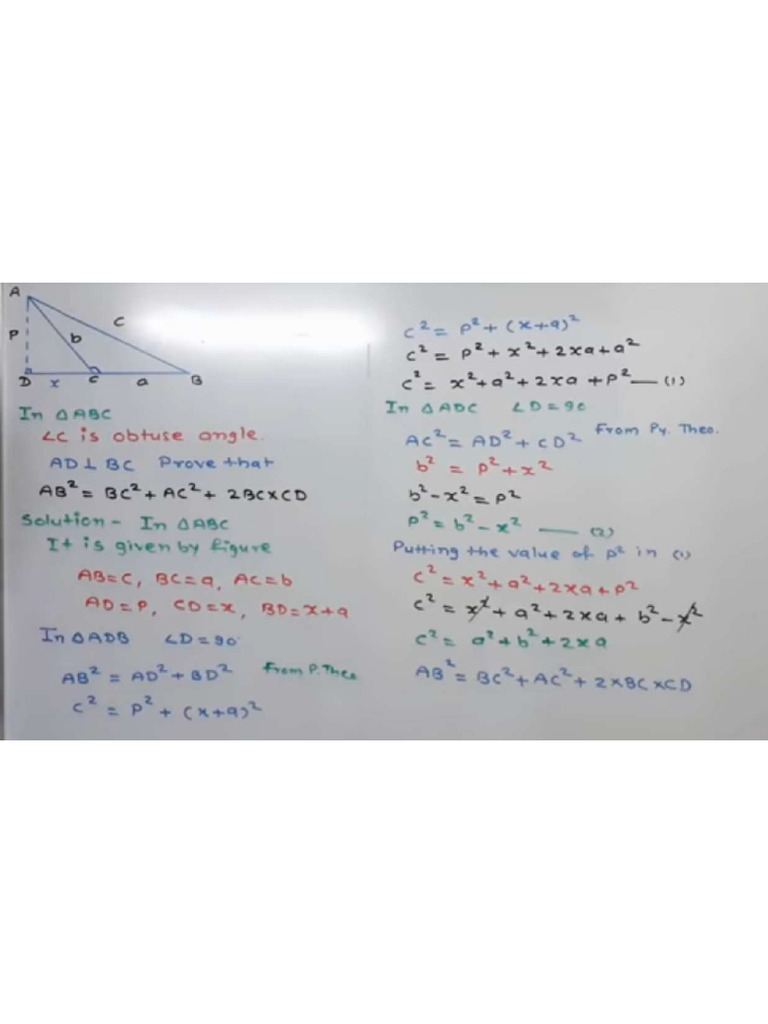 A
P
b
c
D x C a B
In △ABC
∠C is obtuse angle.
AD⊥BC Prove that
AB² = BC² + AC² + 2BC×CD
Solution – In △ABC
It is given by figure
AB=c, BC=a, AC=b
AD=P, CD=x, BD=x+a
In △ADB ∠D=90°
AB² = AD² + BD² From P. Theo.
c² = P² + (x+a)²
c² = P² + (x+a)²
c² = P² + x² + 2xa + a²
c² = x² + a² + 2xa + P² — (1)
In △ADC ∠D=90
AC² = AD² + CD² From Py. Theo.
b² = P² + x²
b² - x² = P²
P² = b² - x² — (2)
Putting the value of P² in (1)
c² = x² + a² + 2xa + P²
c² = x² + a² + 2xa + b² - x²
c² = a² + b² + 2xa
AB² = BC² + AC² + 2×BC×CD